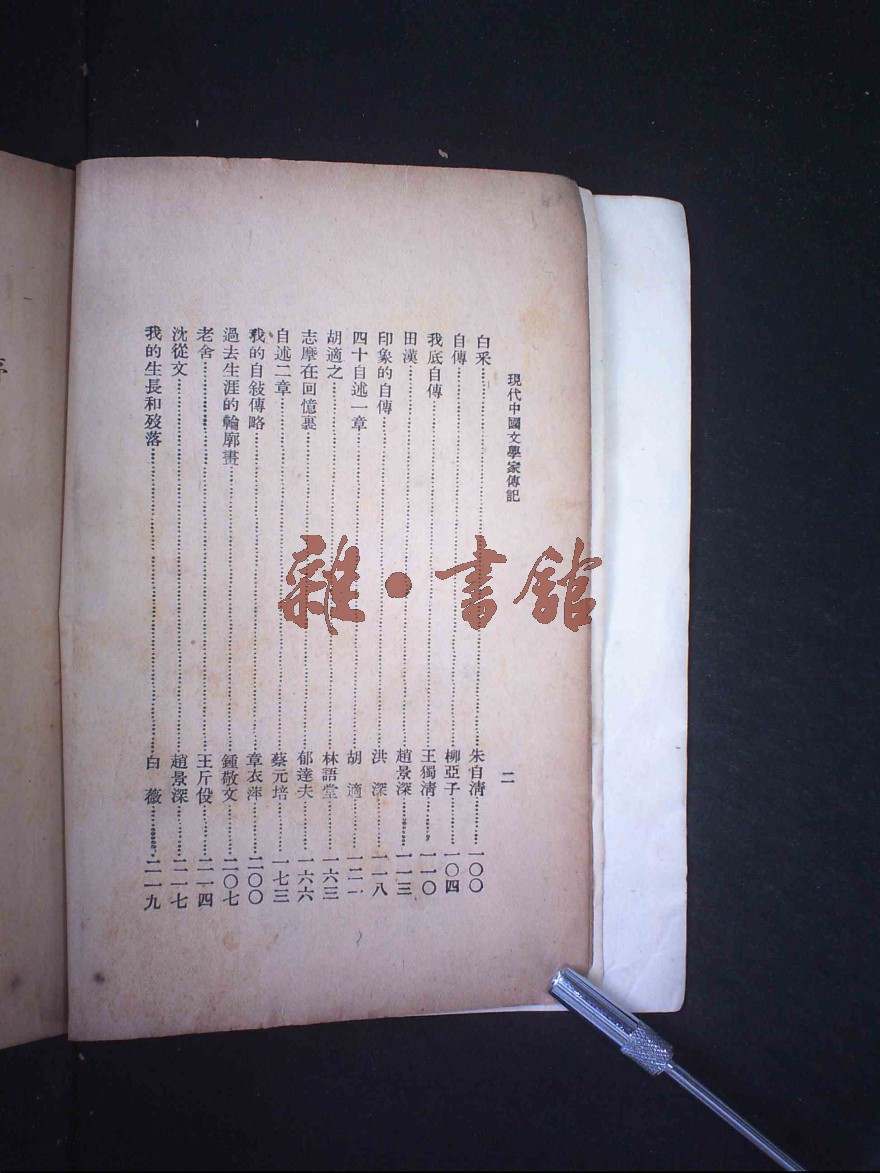 現代中國文學家傳記
二
白采……朱自清……一〇〇
自傳……柳亞子……一〇四
我底自傳……王獨清……一一〇
田漢……趙景深……一一三
印象的自傳……洪深……一一八
四十自述一章……胡適……一二一
胡適之……林語堂……一六三
志摩在回憶裏……郁達夫……一六六
自述二章……蔡元培……一七三
我的自敍傳略……章衣萍……二〇〇
過去生涯的輪廓畫……鍾敬文……二〇七
老舍……王斤役……二一四
沈從文……趙景深……二一七
我的生長和歿落……白薇……二一九
雜·書館